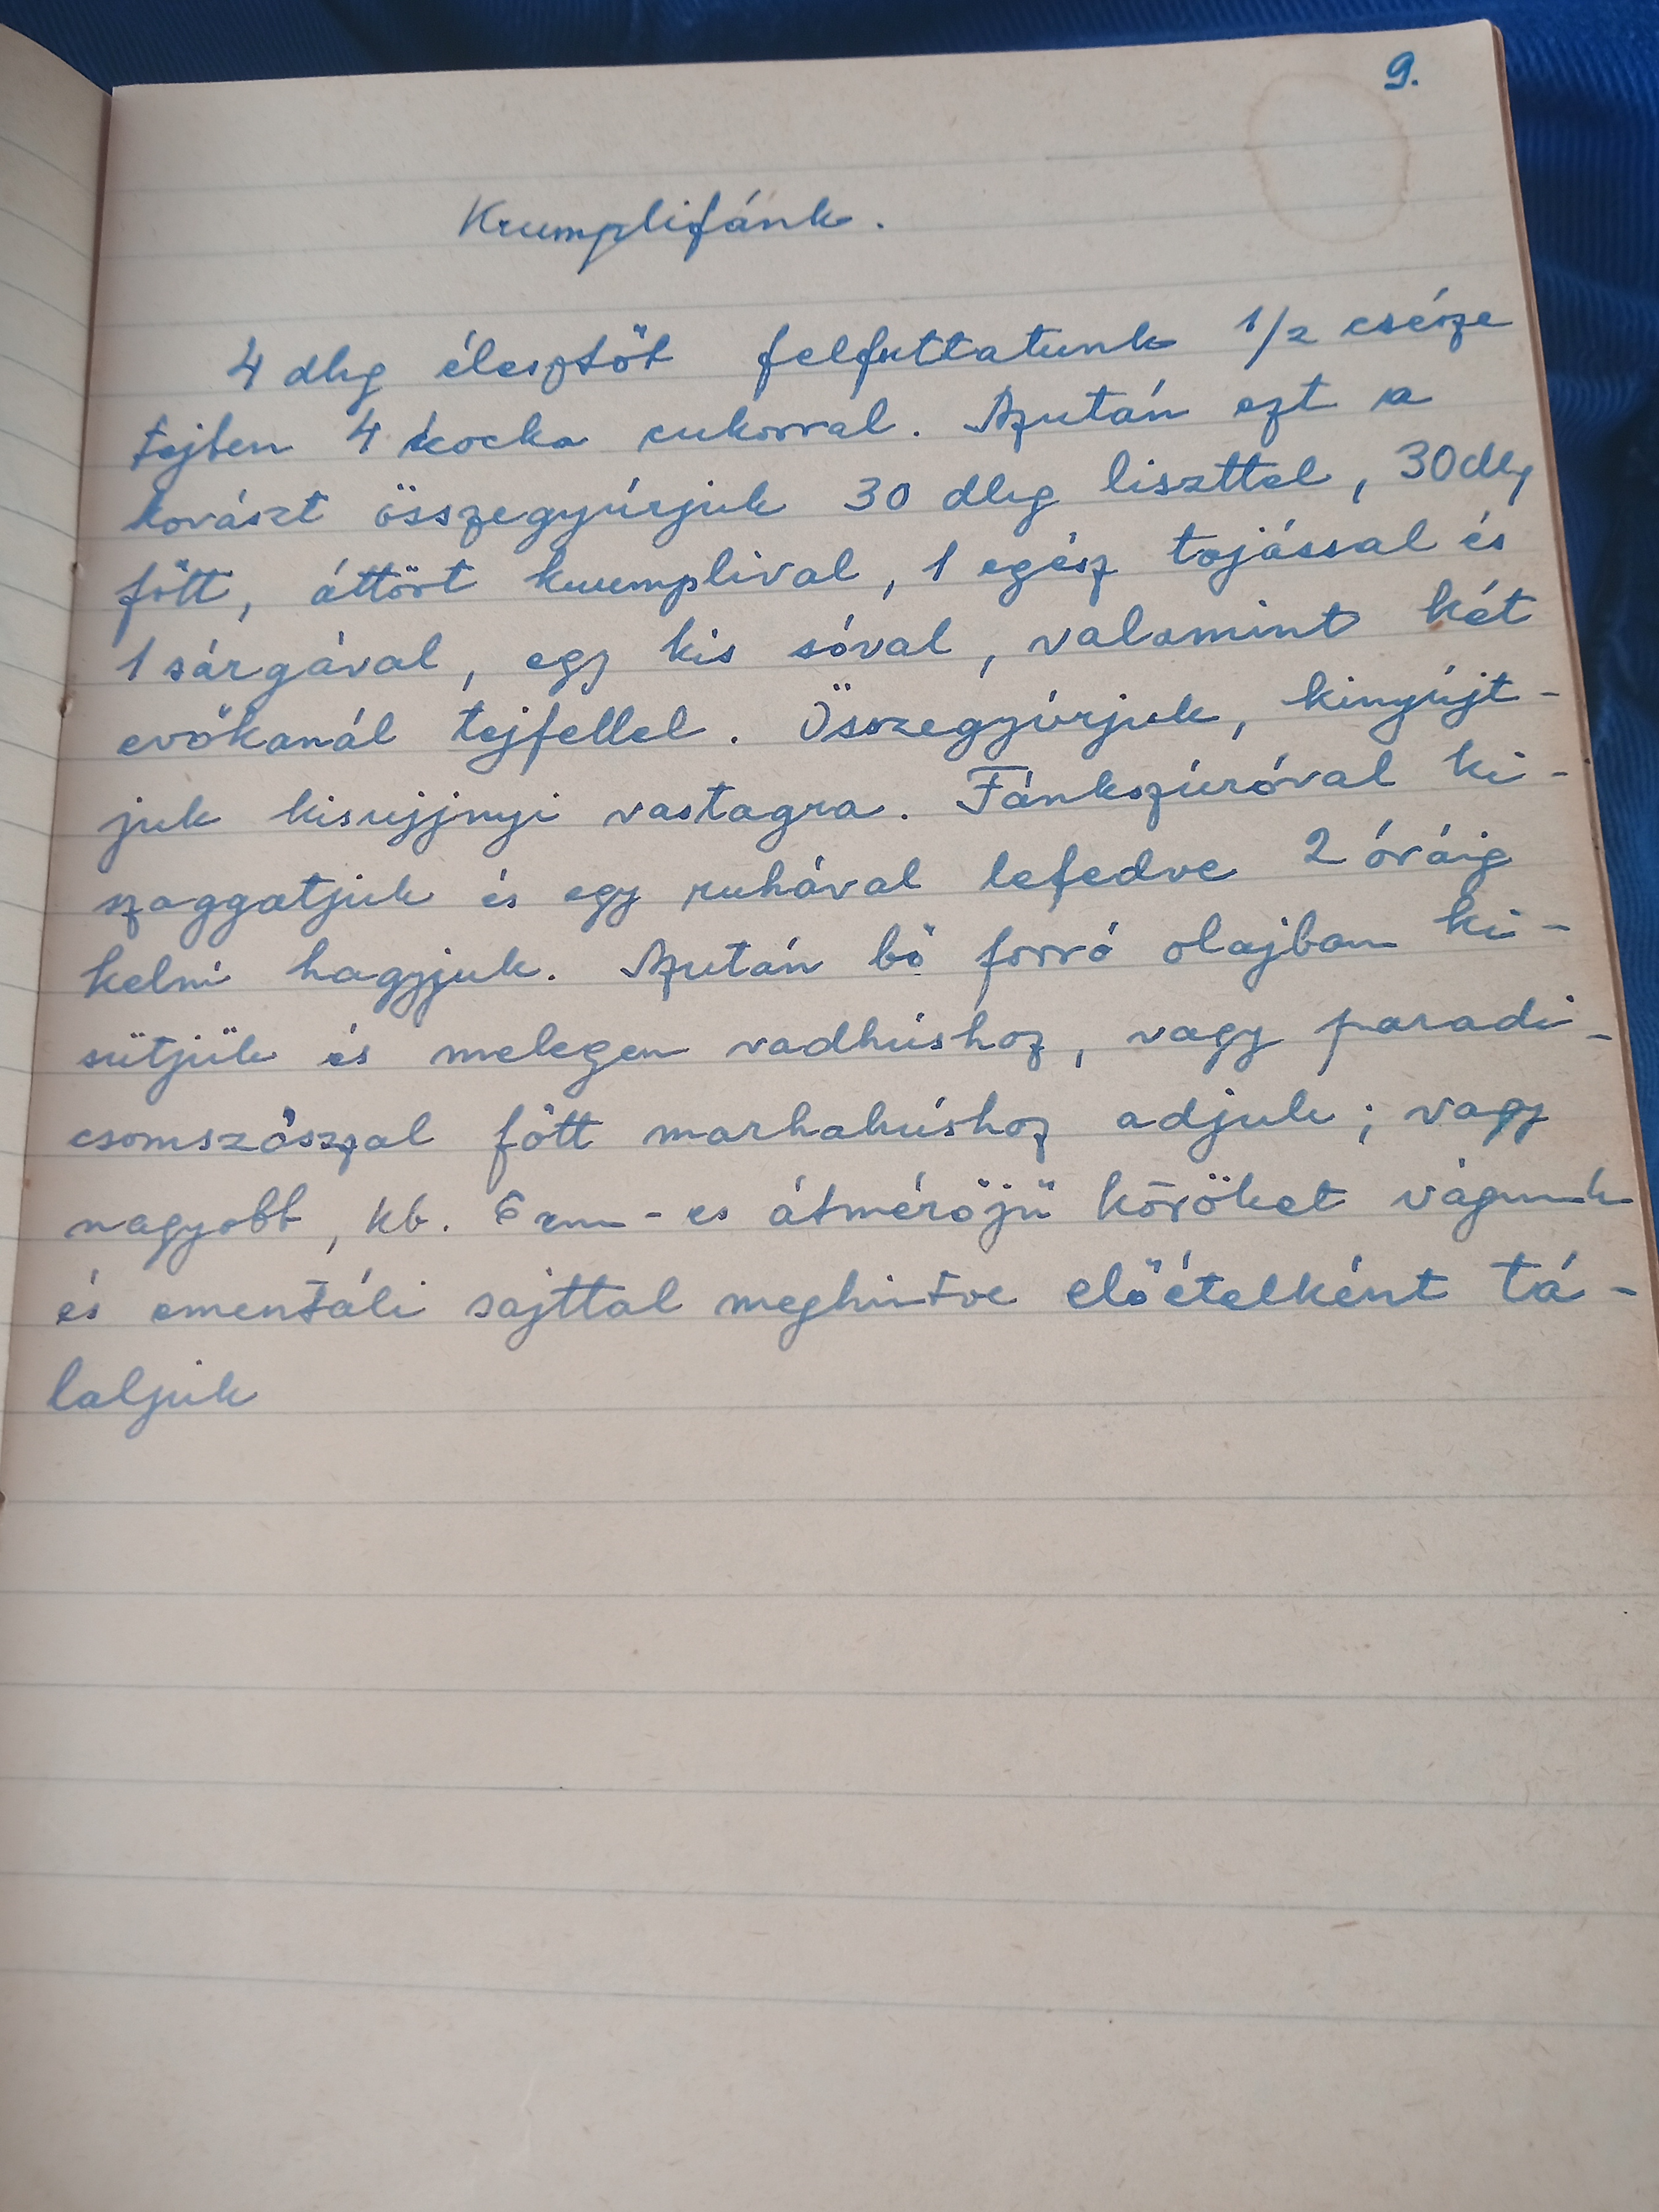 9.
Krumplifánk.
4 dkg élesztőt felfuttatunk 1/2 csésze
tejben 4 kocka cukorral. Azután ezt a
kovászt összegyúrjuk 30 dkg liszttel, 30 dkg
főtt, áttört krumplival, 1 egész tojással és
1 sárgával, egy kis sóval, valamint két
evőkanál tejfellel. Összegyúrjuk, kinyújt-
juk kisujjnyi vastagra. Fánkszúróval ki-
szaggatjuk és egy ruhával lefedve 2 óráig
kelni hagyjuk. Azután bő forró olajban ki-
sütjük és melegen vadhúshoz, vagy paradi-
csomszósszal főtt marhahúshoz adjuk; vagy
nagyobb, kb. 6 cm-es átmérőjű köröket vágunk
és ementáli sajttal meghintve előételként tá-
laljuk